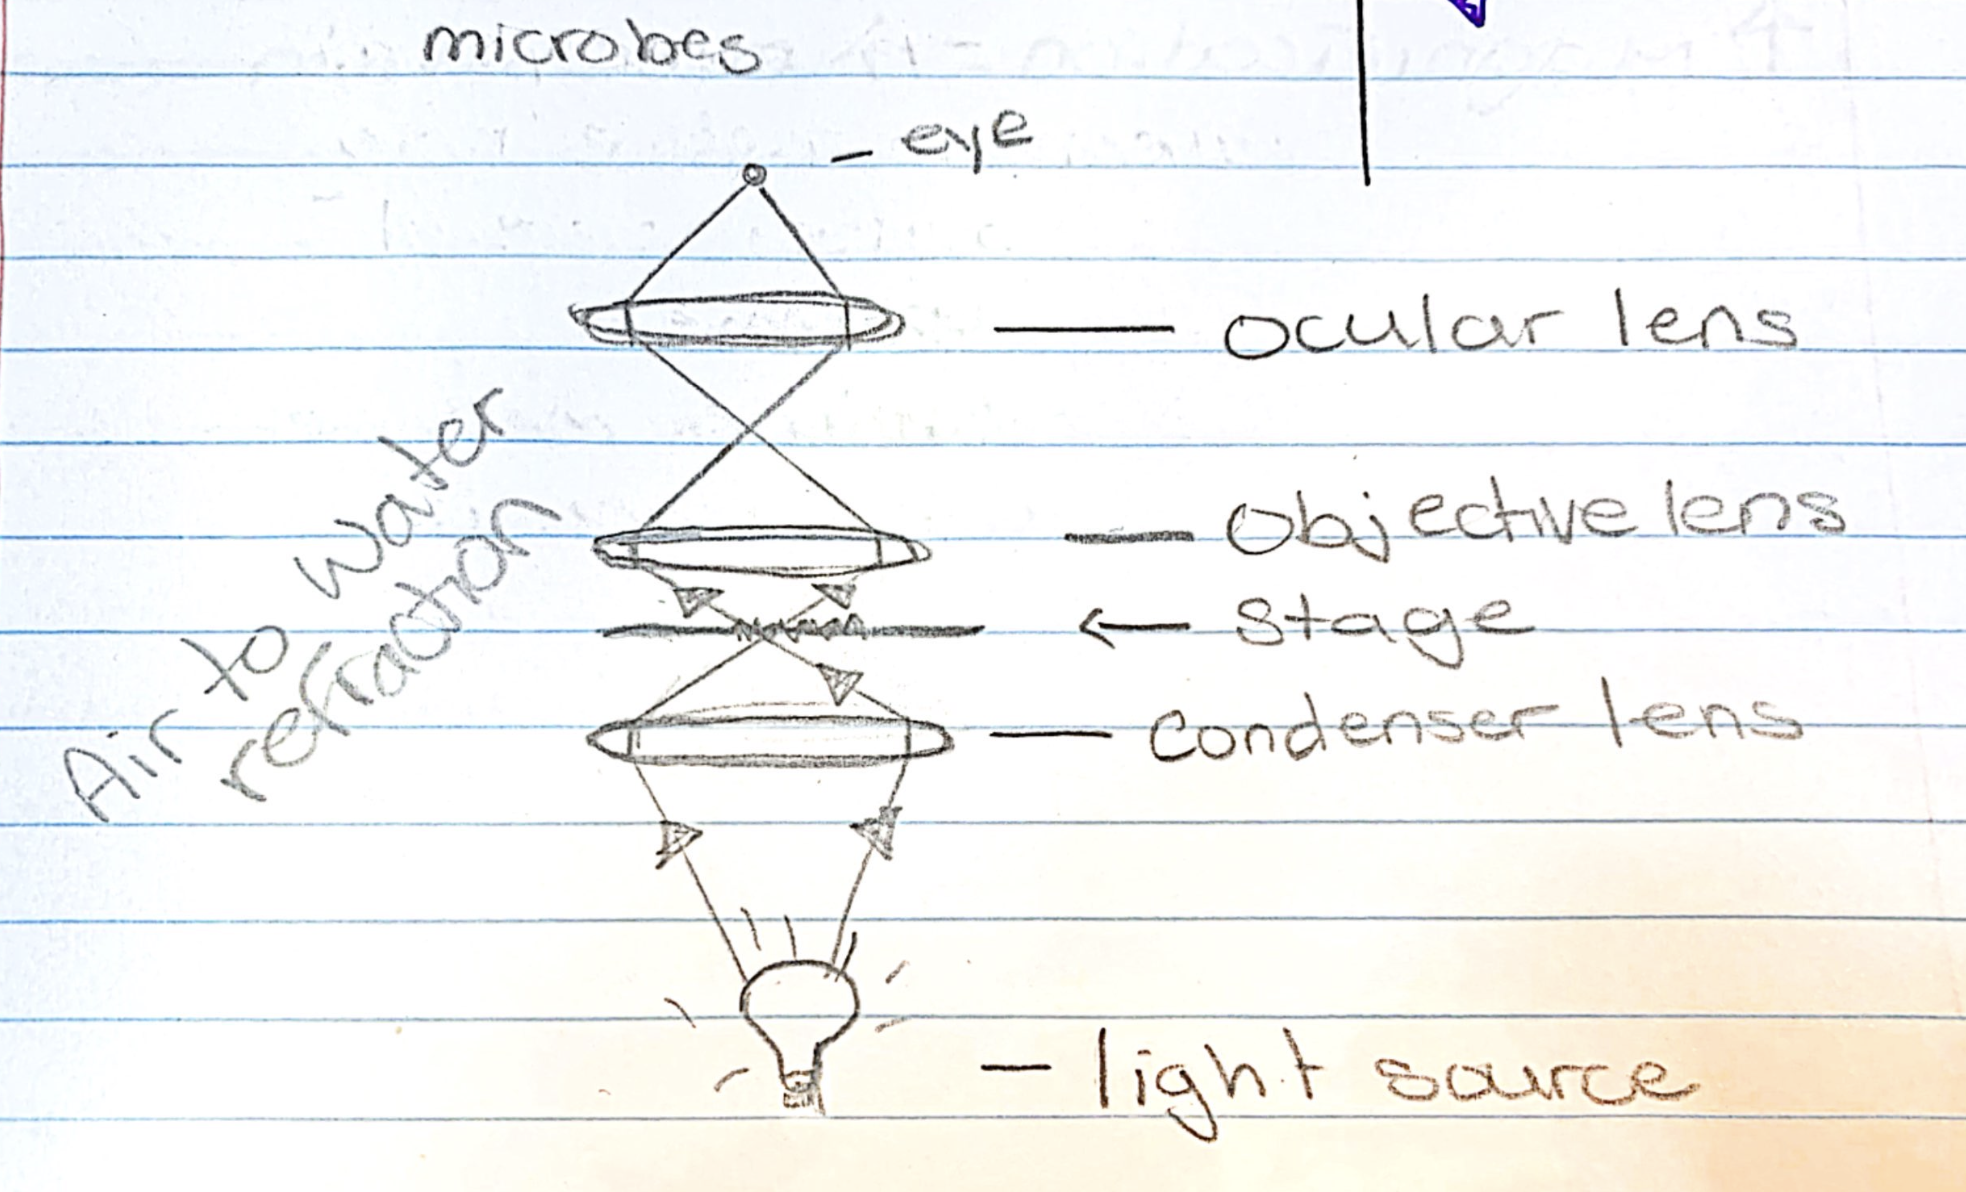 microbes
eye
ocular lens
Objective lens
Stage
Air to water
refraction
Condenser lens
light source